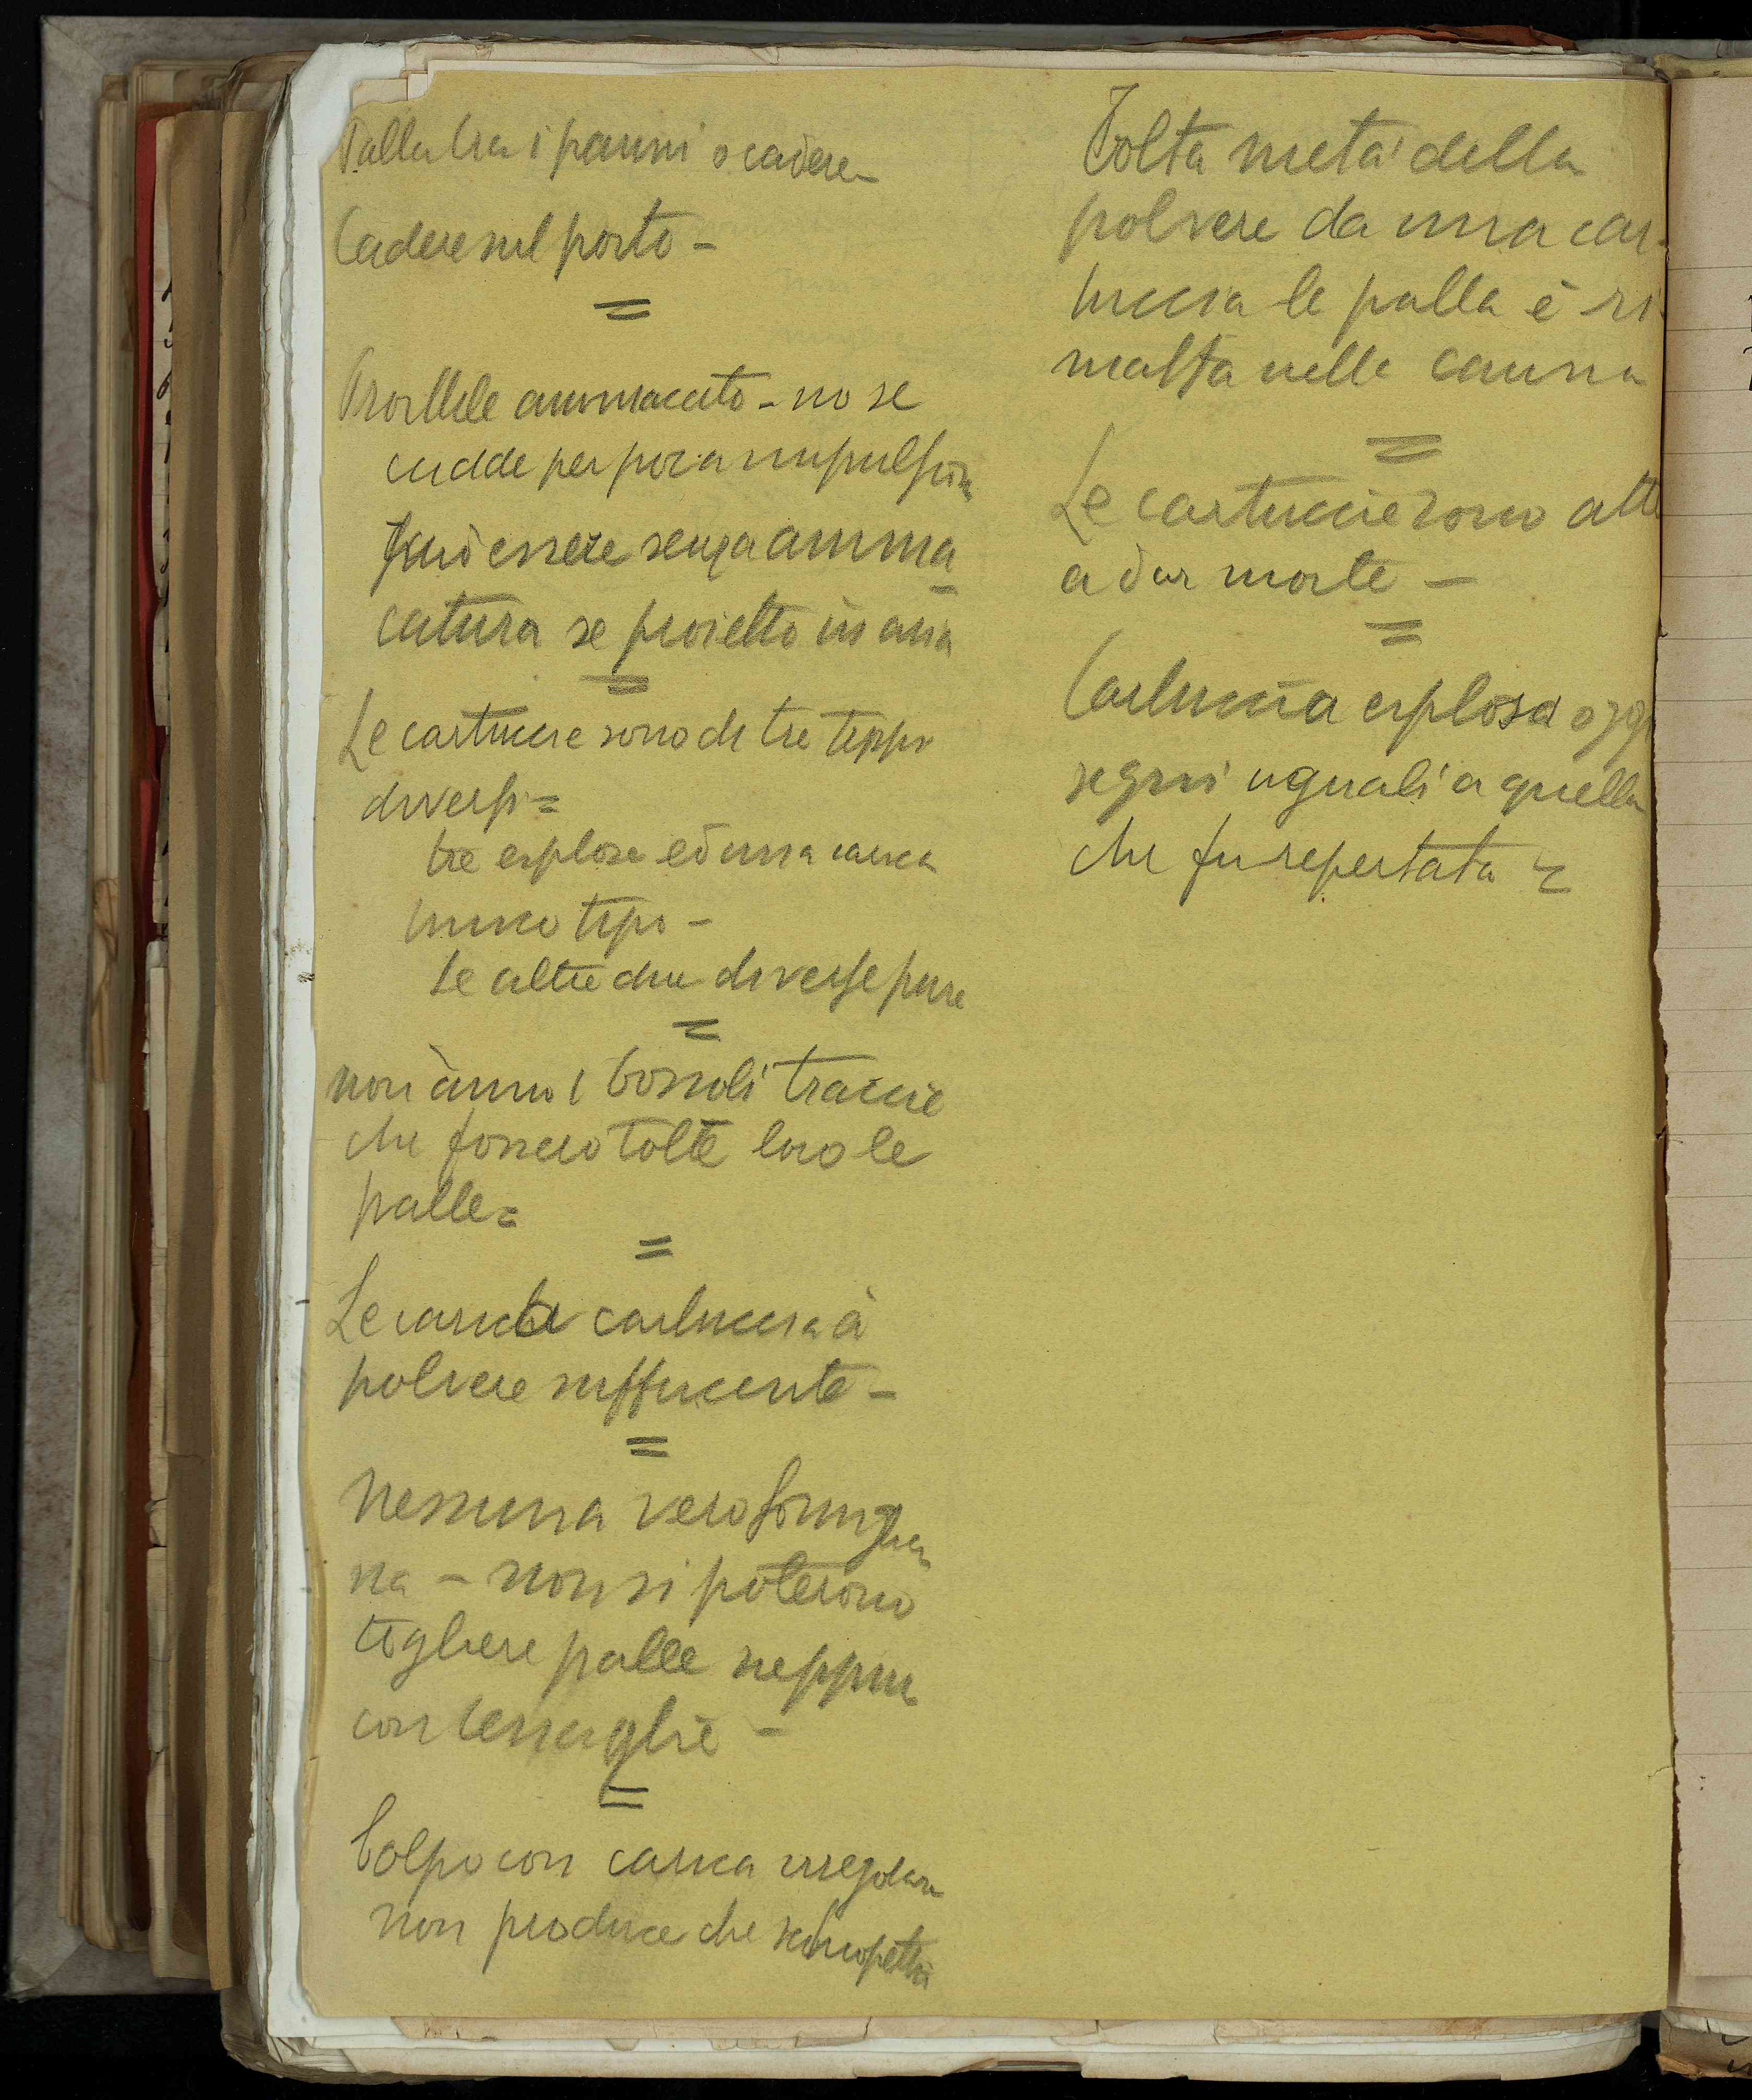 Palla tra i panni o cadere -
Cadere sul posto -
=
Proiettile ammaccato - no se
cadde per poca impulsion
può essere senza amma
catura se proietto in aria
=
Le cartucce sono di tre tippi
diversi =
tre esplose ed una carica
unico tipo -
Le altre due diverse pure
=
non ànno i bossoli traccie
che fossero tolte loro le
palle =
=
Le carica cartuccia à
polvere sufficente -
=
Nessuna verosimiglian
za - non si poterono
togliere palle neppure
con tenaglie -
=
Colpo con carica irregolare
non produce che
Tolta metà della
polvere da una car-
tuccia la palla è ri-
masta nella canna
=
Le cartuccie sono atte
a dar morte -
=
Cartuccia esplosa oggi
segni uguali a quella
che fu repertata =